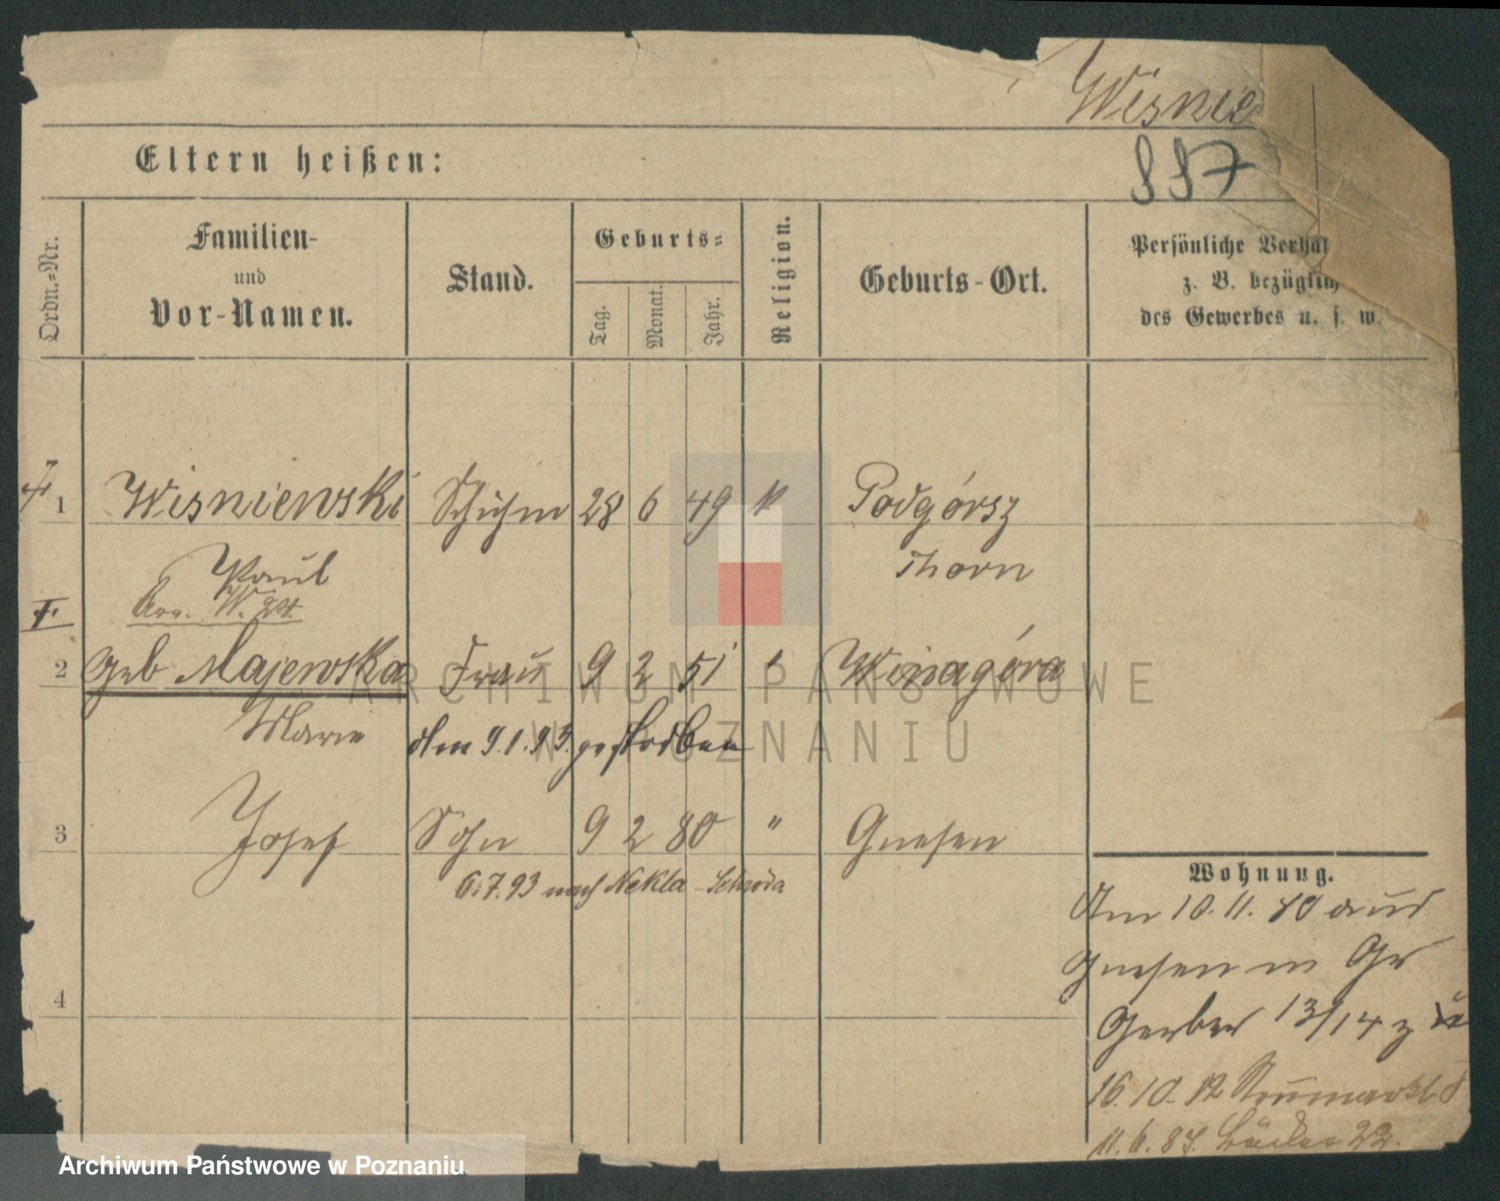 Wisnie
Eltern heißen:
Ordn.-Nr.
Familien-
und
Vor-Namen.
Stand.
Geburts-
Tag.
Monat.
Jahr.
Religion.
Geburts-Ort.
Persönliche Verhäl
z. B. bezüglich
des Gewerbes u. s. w.
1 Wisniewski Schuhm 28 6 49 k Podgórsz
Paul Thorn
2 geb Majewska Frau 9 2 51 " Winagóra
Marie den 9.1.93. gestorben
3 Josef Sohn 9 2 80 " Gnesen
6.7.93 nach Nekla - Schroda
4
Wohnung.
Am 10. 11. 80 aus
Gnesen in Gr
Gerber 13/14 z
16. 10. 82 Neumarkt
11. 6. 87. 22.
ARCHIWUM PAŃSTWOWE
W POZNANIU
Archiwum Państwowe w Poznaniu